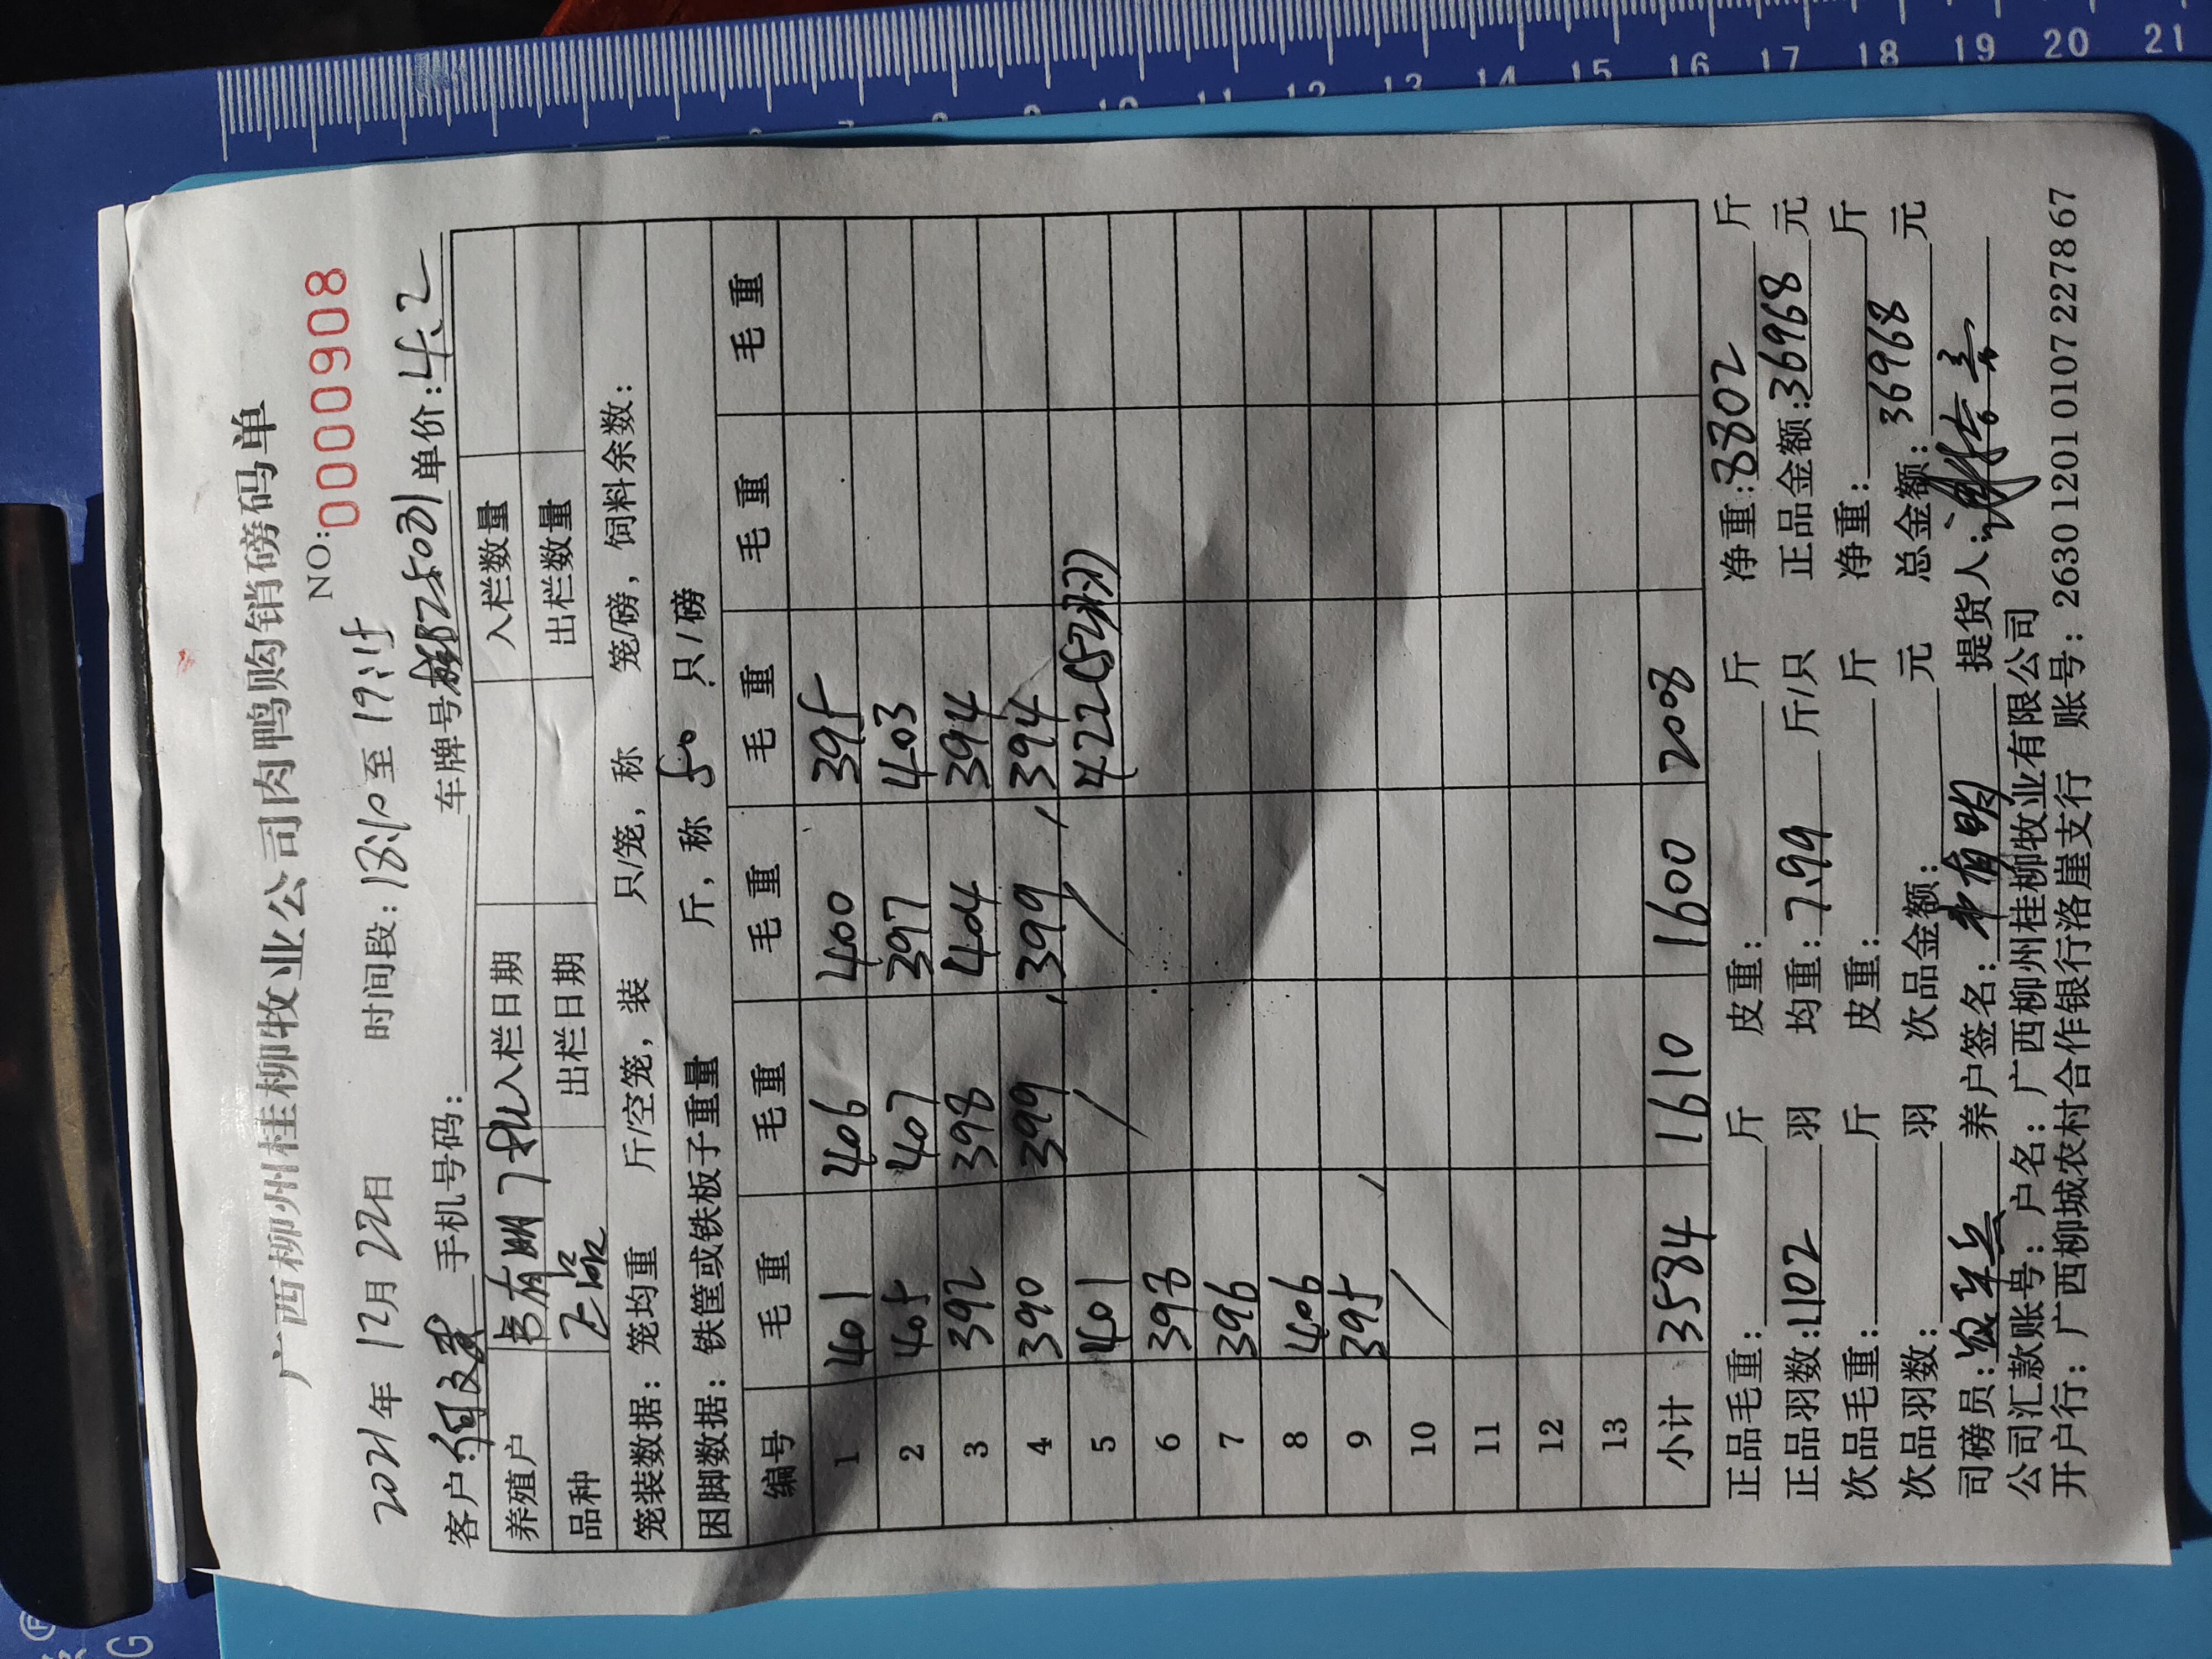 广西柳州桂柳牧业公司肉鸭购销磅码单
NO:0000908
2021年12月22日 时间段:18:10至19:15
客户:何 手机号码: 车牌号 单价:4.2
养殖户 韦有明 入栏日期 入栏数量
品种 正品 出栏日期 出栏数量
笼装数据:笼均重 斤/空笼,装 只/笼,称 笼/磅,饲料余数:
困脚数据:铁筐或铁板子重量 斤,称 50 只/磅
编号 毛重 毛重 毛重 毛重 毛重 毛重
1 401 406 400 395
2 405 407 397 403
3 392 398 404 394
4 390 399 399 394
5 401 422(52只)
6 398
7 396
8 406
9 395
10
11
12
13
小计 3584 1610 1600 2008
正品毛重: 斤 皮重: 斤 净重:8802 斤
正品羽数:1102 羽 均重:7.99 斤/只 正品金额:36968 元
次品毛重: 斤 皮重: 斤 净重: 斤
次品羽数: 羽 次品金额: 元 总金额:36968 元
司磅员: 养户签名:韦有明 提货人:
公司汇款账号:户名:广西柳州桂柳牧业有限公司
开户行:广西柳城农村合作银行洛崖支行 账号:2630 1201 0107 2278 67
10 11 12 13 14 15 16 17 18 19 20 21
®
G